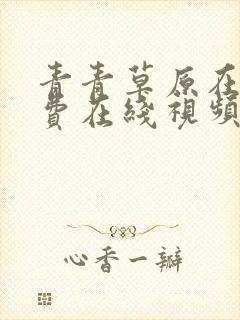 青青草原在
費在綫視頻
心香一瓣